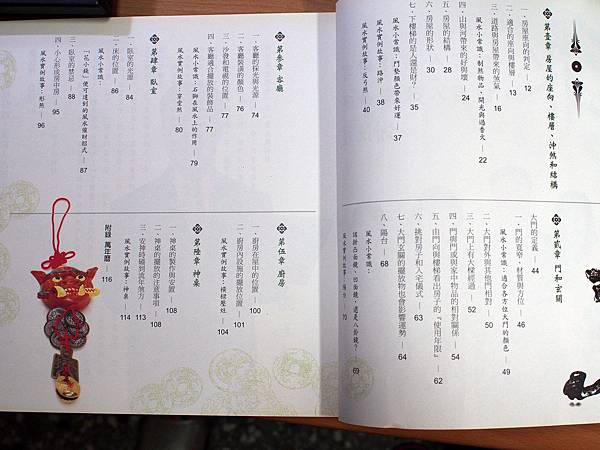 第壹章 房屋的座向、樓層、沖煞和結構
一、房屋座向的判定 12
二、適合的座向與樓層 13
三、道路與房屋帶來的煞氣 16
風水小常識：制煞物品、開光與過香火 22
四、山與河帶來的好與壞 24
五、房屋的結構 28
六、房屋的形狀 30
七、下樓梯的是人還是財？ 35
風水小常識：門墊顏色帶來好運 37
風水實例故事：路沖 38
風水實例故事：反弓煞 40
第貳章 門和玄關
大門的定義 44
一、門的寬窄、材質與方位 46
風水小常識：適合各方位大門的顏色 49
二、大門對外與其他門相對 50
三、大門上有大樑經過 52
四、門與門或對家中物品的相對關係 54
五、由門向與樓梯看出房子的『使用年限』 62
六、挑對房子和入宅儀式 63
七、大門玄關的擺放物也會影響運勢 64
八、陽台 68
風水小常識：
請掛凸面鏡、凹面鏡，還是八卦鏡？ 69
風水實例故事：陽台 70
第參章 客廳
一、客廳的採光與光源 74
二、客廳裝潢的顏色 76
三、沙發和電視的位置 77
四、客廳適合擺放的裝飾品 77
風水小常識：石獅在風水上的作用 79
風水實例故事：穿堂煞 80
第肆章 臥室
一、臥室的光源 84
二、床的位置 86
「花小錢」便可達到的風水催財招式 87
風水小常識：
三、臥室的禁忌 88
四、小心形成房中房 95
風水實例故事：形煞 96
第伍章 廚房
一、廚房在屋中的位置 100
二、廚房內設施的擺放位置 101
風水實例故事：橫樑壓灶 104
第陸章 神桌
一、神桌的製作與安置 108
二、神桌的擺放的注意事項 108
三、安神時碰到流年煞方 113
風水實例故事：神桌 114
附錄 萬年曆 116